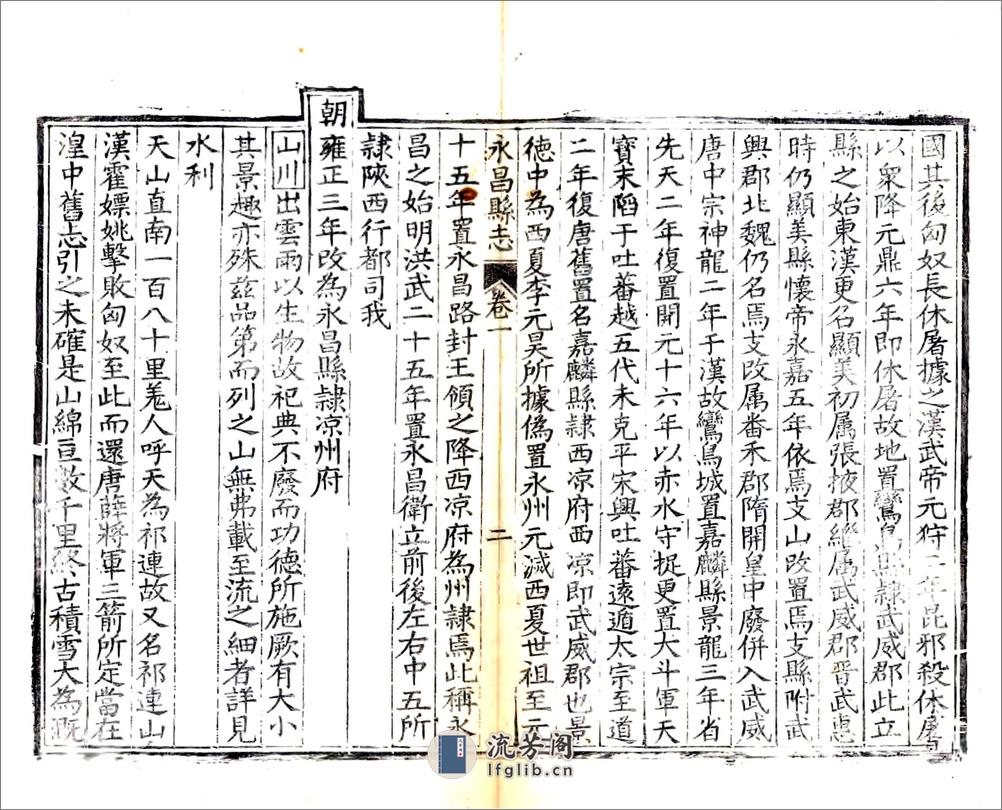 國其後匈奴長休屠據之漢武帝元狩二年昆邪殺休屠
以衆降元鼎六年即休屠故地置鸞鳥縣隷武威郡此立
縣之始東漢更名顯美初属張掖郡繼属武威郡晉武惠
時仍顯美縣懷帝永嘉五年依焉支山改置焉支縣附武
興郡北魏仍名焉支改属番禾郡隋開皇中廢併入武威
唐中宗神龍二年于漢故鸞鳥城置嘉麟縣景龍三年省
先天二年復置開元十六年以赤水守捉更置大斗軍天
寶末陷于吐蕃越五代未克平宋興吐蕃遠遁太宗至道
二年復唐舊置名嘉麟縣隷西凉府西凉即武威郡也景
徳中為西夏李元昊所據偽置永州元滅西夏世祖至元
永昌縣志 卷一 二
十五年置永昌路封王領之降西凉府為州隷焉此稱永
昌之始明洪武二十五年置永昌衛立前後左右中五所
隷陜西行都司我
朝雍正三年改為永昌縣隷凉州府
山川出雲雨以生物故祀典不廢而功德所施厥有大小
其景趣亦殊兹品第而列之山無弗載至流之細者詳見
水利
天山直南一百八十里羌人呼天為祁連故又名祁連山
漢霍嫖姚擊敗匈奴至此而還唐薛將軍三箭所定當在
湟中舊志引之未確是山綿亘数千里終古積雪大為溉
流芳阁
lfglib.cn